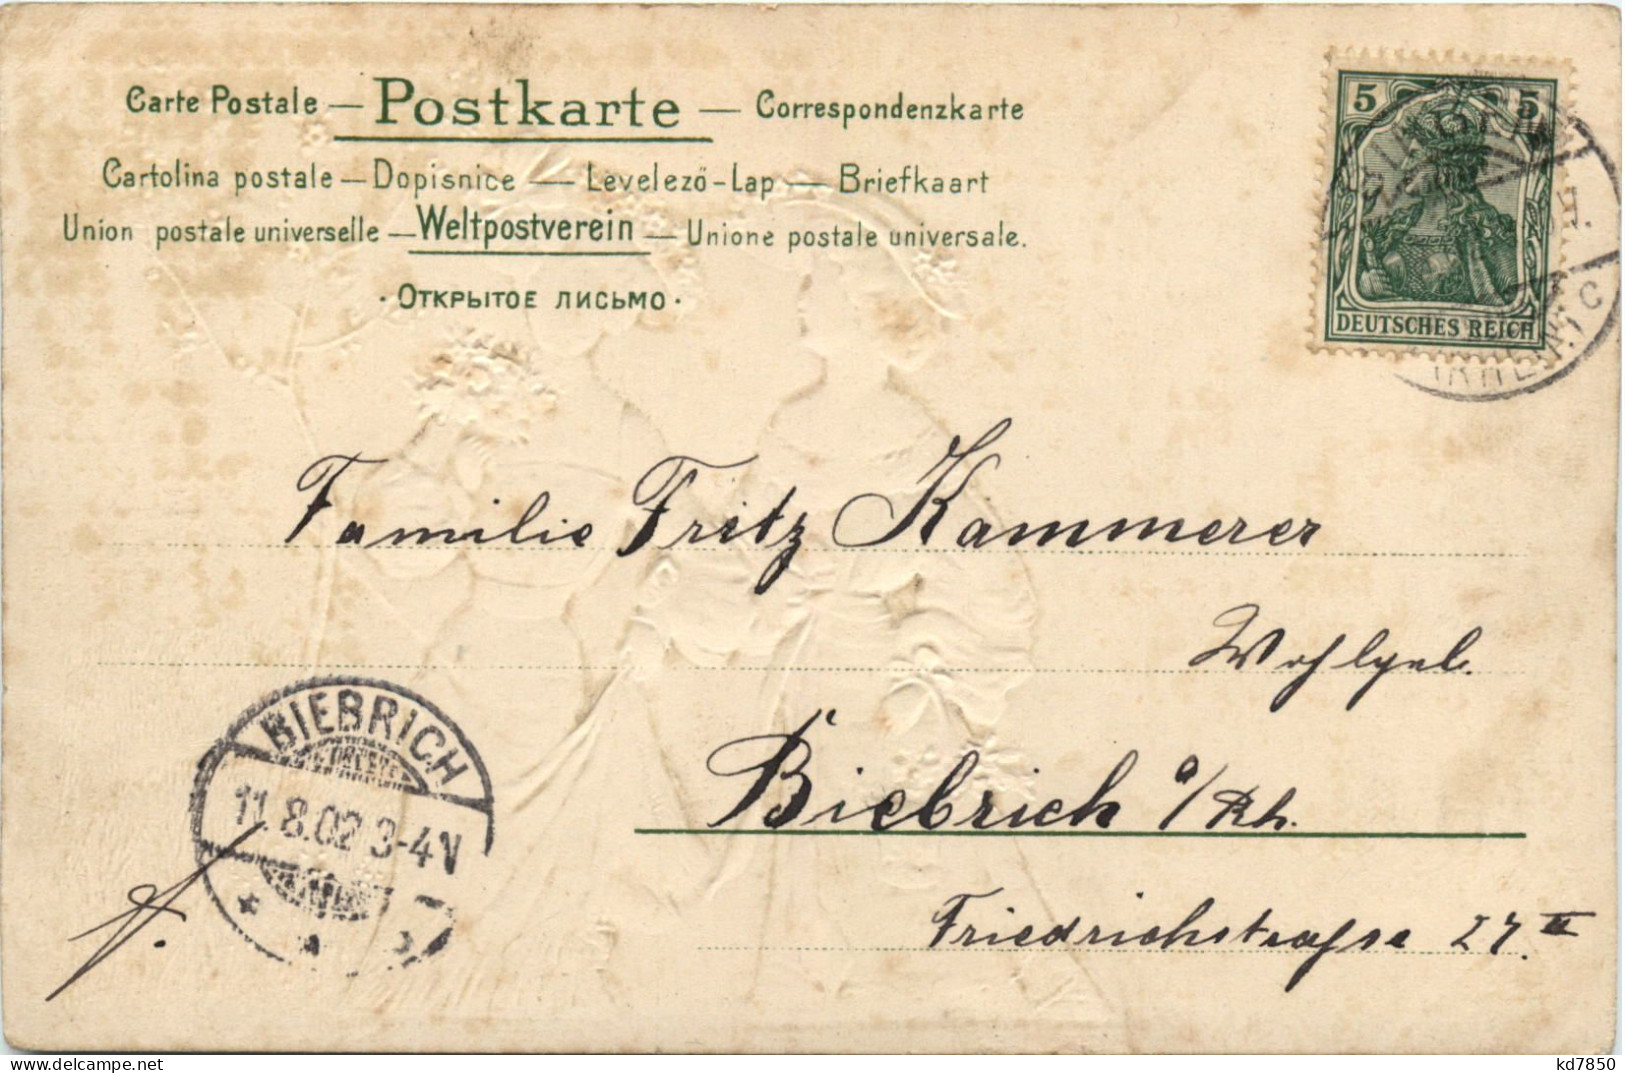 Carte Postale — Postkarte — Correspondenzkarte
Cartolina postale — Dopisnice — Levelező-Lap — Briefkaart
Union postale universelle — Weltpostverein — Unione postale universale.
· Открытое письмо ·
5 5
DEUTSCHES REICH
Familie Fritz Kammerer
Wohlgeb.
Biebrich a/Rh.
Friedrichstrasse 27. II
BIEBRICH
11.8.02 3-4V
kd7850